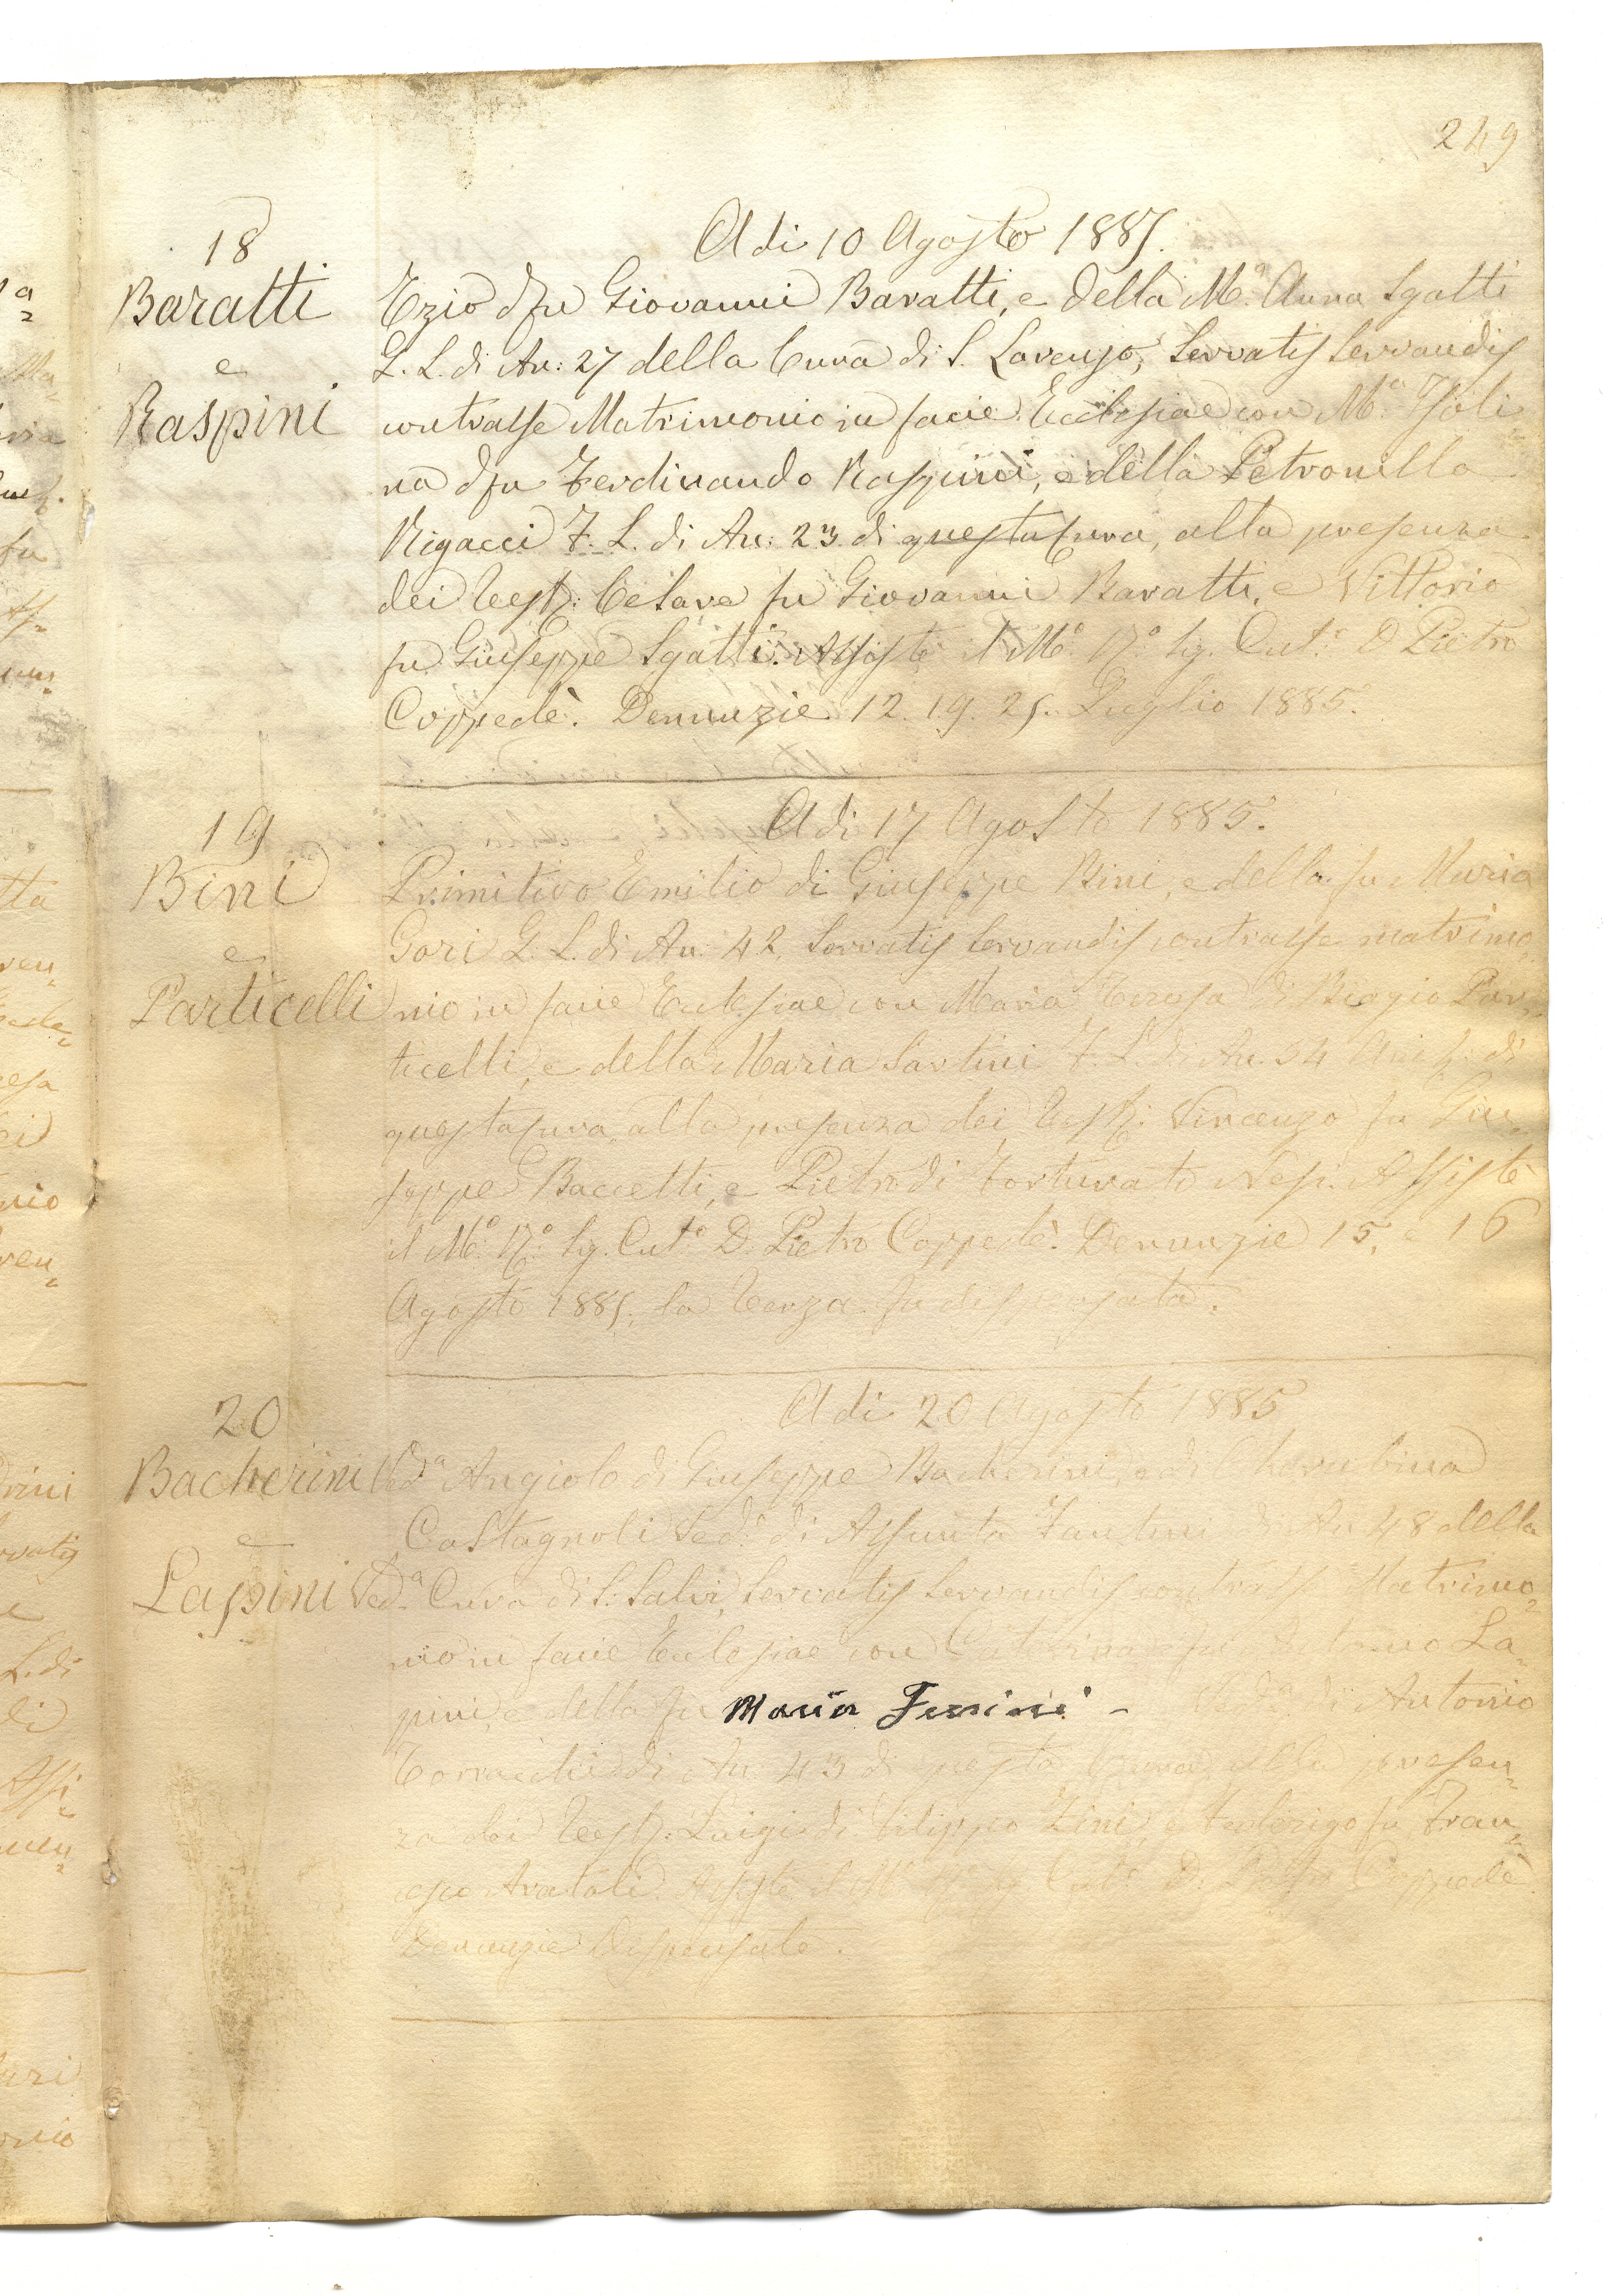 249
18
Baratti
e
Raspini
Adi 10 Agosto 1885.
Ezio d fu Giovanni Baratti, e della Mᵃ. Anna Sgatti
G. L. di An: 27 della Cura di S. Lorenzo, Servatis Servandis
contrasse Matrimonio in facie Ecclesiae con Mᵃ Isoli
na d fu Ferdinando Raspini, e della Petronilla
Rigacci F. L. di An: 23 di questa Cura, alla presenza
dei Testj: Cesare fu Giovanni Baratti, e Vittorio
fu Giuseppe Sgatti. Assistè il Mº. Rº. Sig. Cutº. D Pietro
Coppedè. Denunzie 12. 19. 25. Luglio 1885.
19
Bini
e
Particelli
Adi 17 Agosto 1885.
Primitivo Emilio di Giuseppe Bini, e della fu Maria
Gori G. L. di An: 42, Servatis Servandis contrasse matrimo
nio in facie Ecclesiae con Maria Teresa di Biagio Par
ticelli, e della Maria Sartini F. L. di An. 34 di
questa Cura, alla presenza dei Testj: Vincenzo fu Giu
seppe Baccetti, e Pietro di Fortunato Nesi. Assistè
il Mº. Rº. Sig. Cutº. D. Pietro Coppedè. Denunzie 15, e 16
Agosto 1885, la Terza fu dispensata.
20
Bacherini Vedᵃ
e
Lapini Vedᵃ
Adi 20 Agosto 1885
Angiolo di Giuseppe Bacherini, e di Cherubina
Castagnoli Ved. di Assunta Fantini di An 48 della
Cura di S. Salvi, Servatis Servandis contrasse Matrimo
nio in facie Ecclesiae con Caterina fu Antonio La
pini, e della fu Maria Ferrini - di Antonio
di An 43 di questa Cura, alla presen
za dei Testj: Luigi di Filippo Zini, e Federigo fu Fran
Assistè il Mº. Rº. Sig. Cutº. D. Pietro Coppedè
Denunzie Dispensate.